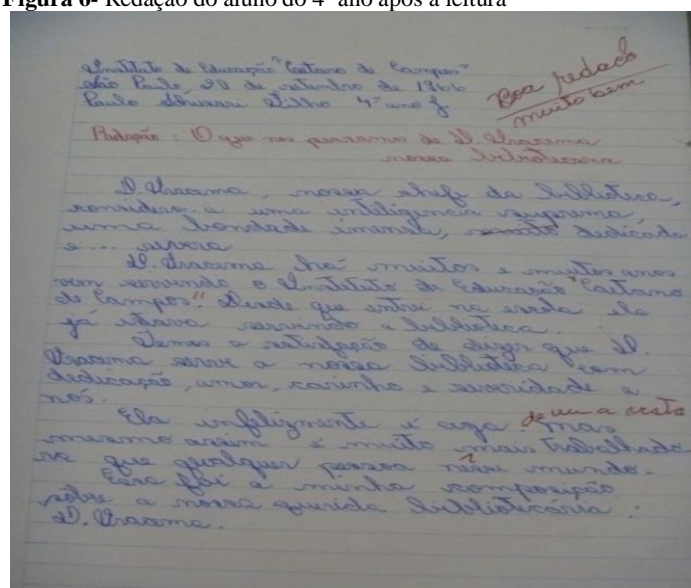 Figura 6- Redação do aluno do 4º ano após a leitura
Instituto de Educação "Caetano de Campos"
São Paulo, 29 de setembro de 1966
Paulo Filho 4º ano J
Boa redação
muito bem
Redação: O que nos pensamos de D. Iracema
nossa bibliotecária
D. Iracema, nossa chefe da biblioteca,
considero a uma inteligência suprema,
uma bondade imensa, dedicada
e... severa
D. Iracema há muitos e muitos anos
vem servindo o Instituto de Educação "Caetano
de Campos". Desde que entrei na escola ela
já estava servindo a biblioteca.
Temos a satisfação de dizer que D.
Iracema serve a nossa biblioteca com
dedicação, amor, carinho e severidade a
nós.
Ela infelizmente é cega de um a vista mas
mesmo assim é muito mais trabalhado
ra que qualquer pessoa nesse mundo.
Essa foi a minha composição
sôbre a nossa querida bibliotecária:
D. Iracema.